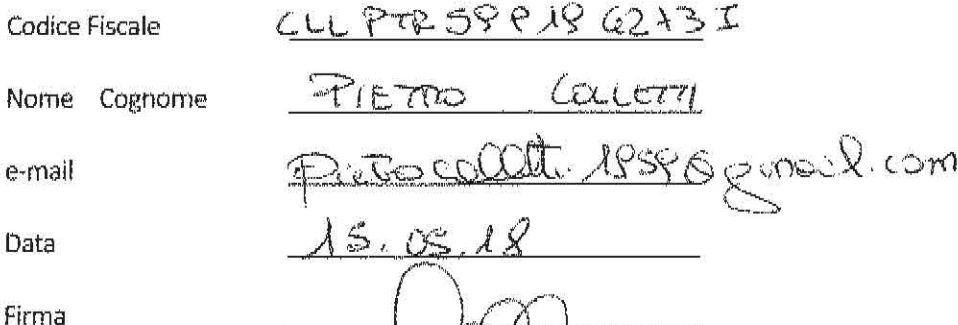 Codice Fiscale CLL PTR 59 P 19 G273I
Nome Cognome PIETRO COLLETTI
e-mail pietrocolletti.1959@gmail.com
Data 15.05.18
Firma